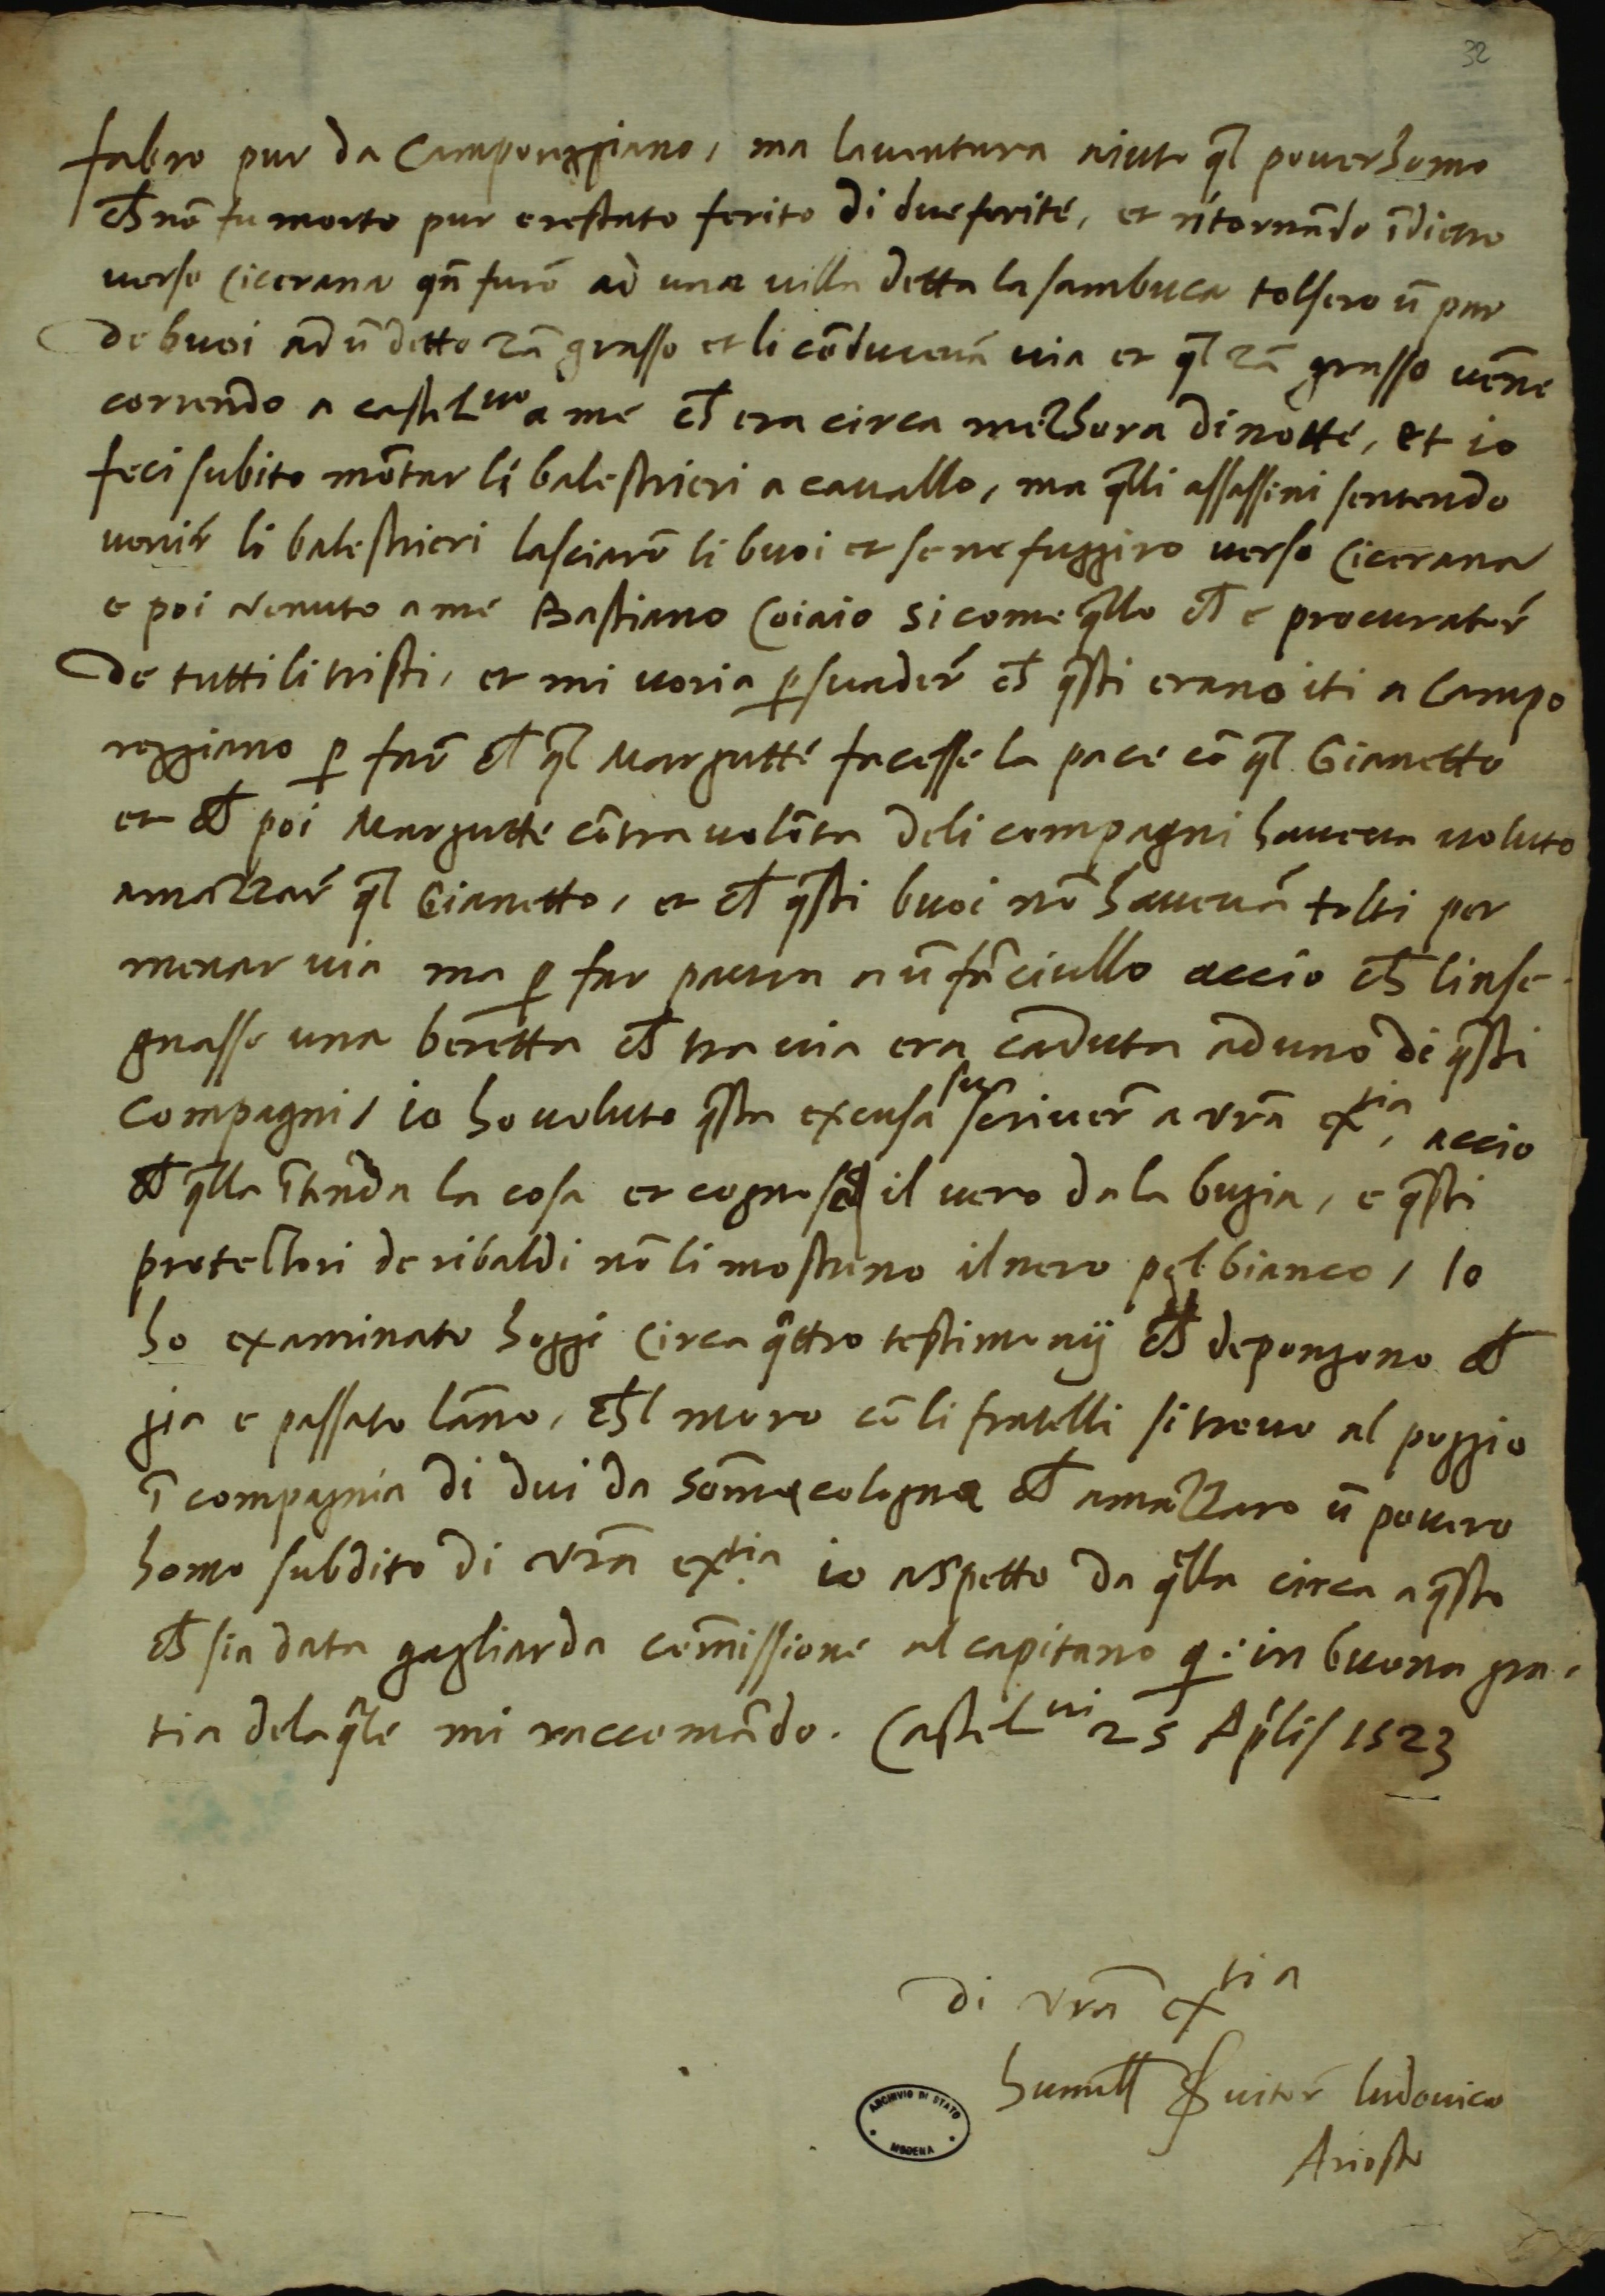 32
fabro pur da Camporeggiano, ma laventura aiuto ql̃ poverhomo
ch̃ nõ fu morto pur e restato ferito di due ferite, et ritornãdo ĩdietro
verso Cicerana qñ furõ ad una villa detta la sambuca tolsero ũ par
de buoi ad ũ detto zã grasso et li cõducevã via et ql̃ zã grasso vẽne
correndo a castel.no a me ch̃ era circa mezhora di notte, et io
feci subito mõtar li balestrieri a cavallo, ma qlli assassini sentendo
venir̃ li balestrieri lasciarõ li buoi et se ne fuggiro verso Cicerana
e poi venuto a me Bastiano Coiaio si come qllo ch̃ e procurator̃
de tutti li tristi, et mi voria ꝑsuader̃ ch̃ qsti erano iti a Campo
reggiano ꝑ far̃ ch̃ ql̃ Margutte facesse la pace cõ ql̃ Gianetto
et ch̃ poi Margutte cõtra volõta deli compagni haveva voluto
amazzar̃ ql̃ Gianetto, et ch̃ qsti buoi nõ havevã tolti per
menar via ma ꝑ far paura a ũ fãciullo accio ch̃ linse-
gnasse una beretta ch̃ tra via era caduta ad uno di qsti
compagni, io ho voluto qsta excusa sua scriver̃ a vrã extia, accio
ch̃ qlla ĩtenda la cosa et cognosca il vero da la bugia, e qsti
protettori de ribaldi nõ li mostrino il nero pel bianco, Io
ho examinato hoggi circa qttro testimonij ch̃ depongono ch̃
gia e passato lãno, ch̃l moro cõ li fratelli si trovo al poggio
ĩ compagnia di dui da Sõmacologna ch̃ amazzaro ũ povero
homo subdito di vrã extia. io aspetto da qlla circa a qsto
ch̃ sia data gagliarda cõmissione al capitano q: in buona gra-
tia dela qle mi raccomãdo. Castel.ni 25 Aplis 1523
di vrã extia
humill Suitor̃ ludovico
Ariosto
ARCHIVIO DI STATO
MODENA